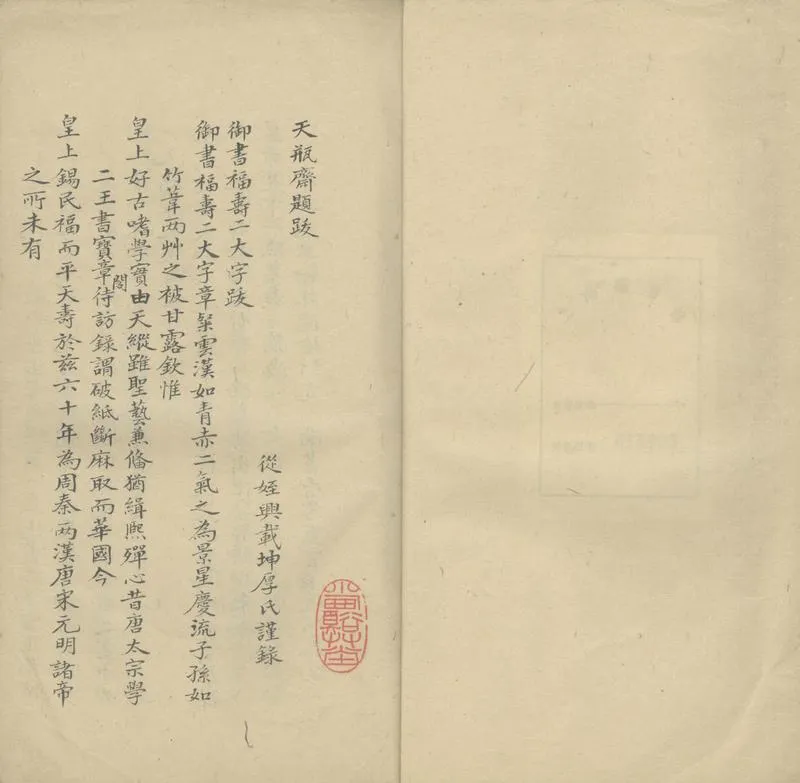 天瓶齋題跋
從姪興載坤厚氏謹錄
御書福壽二大字跋
御書福壽二大字章槼雲漢如青赤二氣之為景星慶流子孫如
竹葦兩艸之被甘露欽惟
皇上好古嗜學實由天縱雖聖藝兼俻猶緝熙殫心昔唐太宗學
二王書寶章待訪錄謂破紙斷麻取而華國今
閣
皇上錫民福而平天壽於茲六十年為周秦两漢唐宋元明諸帝
之所未有